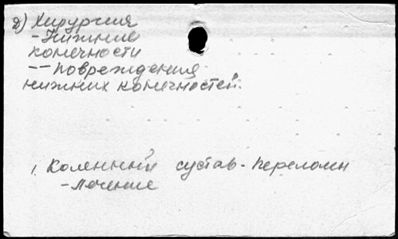 8) Хирургия
- Нижние
конечности
-- Повреждения
нижних конечностей.
1. Коленный сустав - Переломы
- Лечение